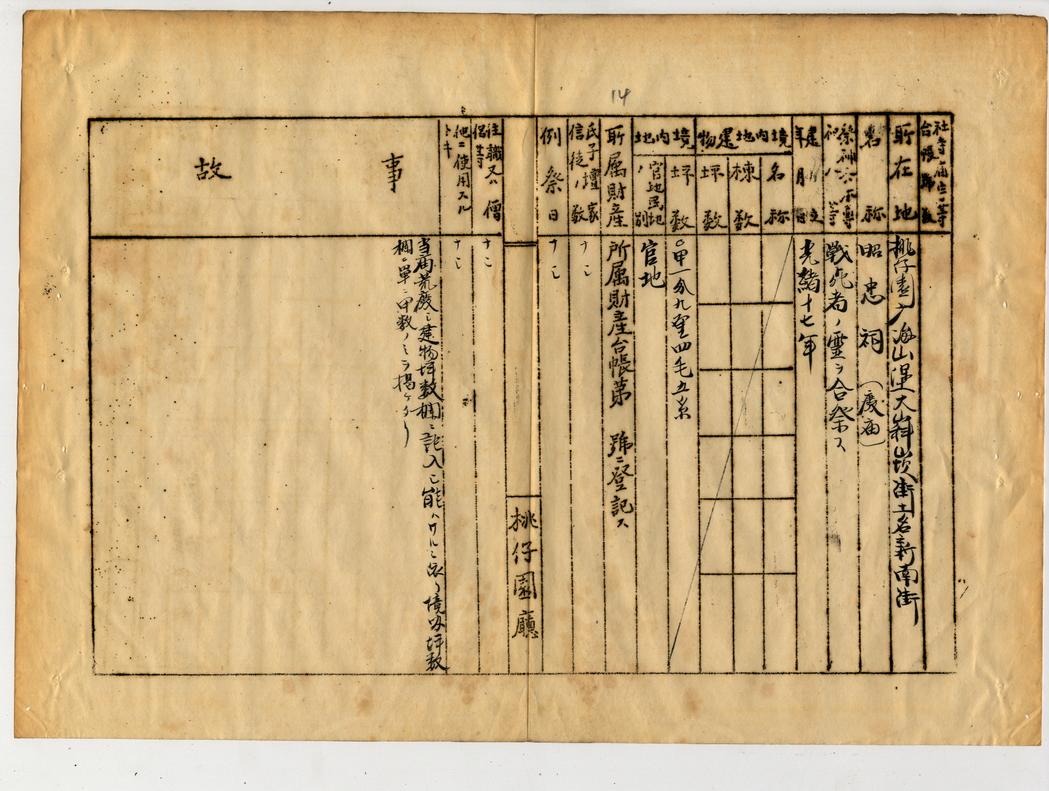 14
社寺廟宇等
台帳番號
所在地
桃仔園廳海山堡大嵙崁街土名新南街
名称
昭忠祠（廢廟）
祭神
戰死者ノ霊ヲ合祭ス
建立
年月日
光緒十七年
境内地建物
名称
棟数
坪数
境内地
坪数
〇甲一分九厘四毛五糸
官地民地ノ別
官地
所属財産
所属財産台帳第 號ニ登記ス
氏子壇家
信徒ノ数
ナシ
例祭日
ナシ
桃仔園廳
住職又ハ僧
侶等
ナシ
他ニ使用スル
トキ
ナシ
事故
当廟荒廢シ建物坪数欄ニ記入シ能ハサルニ依リ境内坪数
欄ニ單ニ甲数ノミヲ掲ケタリ